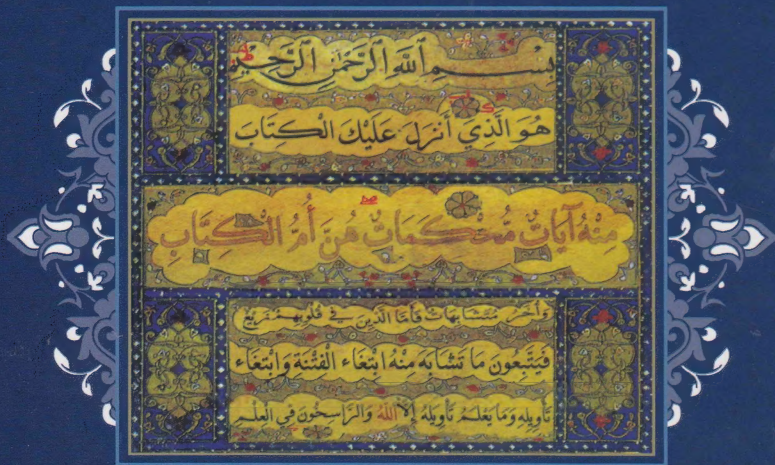 بِسْمِ ٱللَّهِ ٱلرَّحْمَٰنِ ٱلرَّحِيمِ
هُوَ الَّذِي أَنزَلَ عَلَيْكَ الْكِتَابَ
مِنْهُ آيَاتٌ مُحْكَمَاتٌ هُنَّ أُمُّ الْكِتَابِ
وَأُخَرُ مُتَشَابِهَاتٌ فَأَمَّا الَّذِينَ فِي قُلُوبِهِمْ زَيْغٌ
فَيَتَّبِعُونَ مَا تَشَابَهَ مِنْهُ ابْتِغَاءَ الْفِتْنَةِ وَابْتِغَاءَ
تَأْوِيلِهِ وَمَا يَعْلَمُ تَأْوِيلَهُ إِلَّا اللَّهُ وَالرَّاسِخُونَ فِي الْعِلْمِ